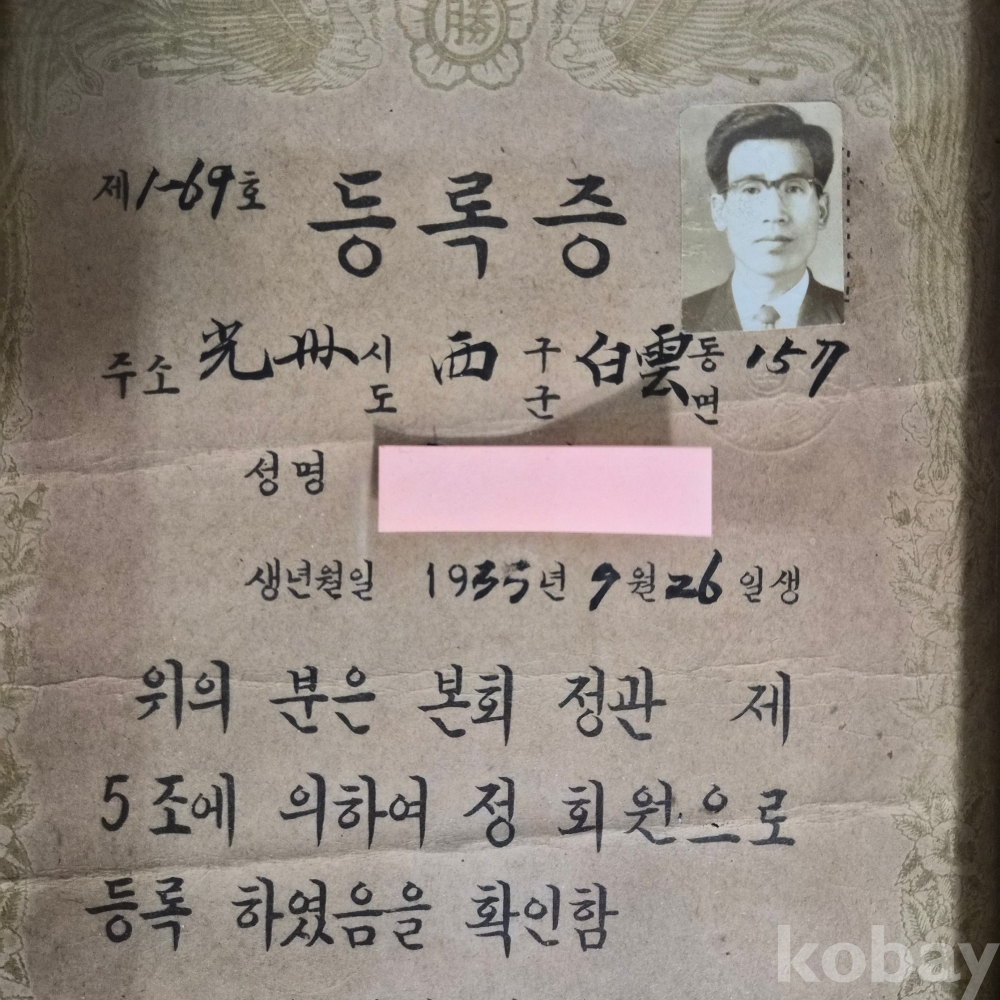 勝
제1-69호 등록증
주소 光州시도 西구군 白雲동면 157
성명
생년월일 1935년 9월 26일생
위의 분은 본회 정관 제
5조에 의하여 정 회원으로
등록 하였음을 확인함
kobay